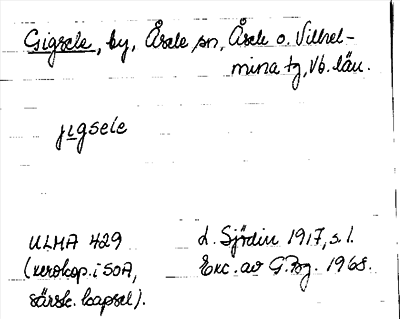 Gigsele, by, Åsele sn, Åsele o. Vilhel-
mina tg, Vb. län.
jigsele
ULMA 429
(xerokop. i SOA,
särsk. kapsel).
L. Sjödin 1917, s. 1.
Exc. av G. Pog. 1968.